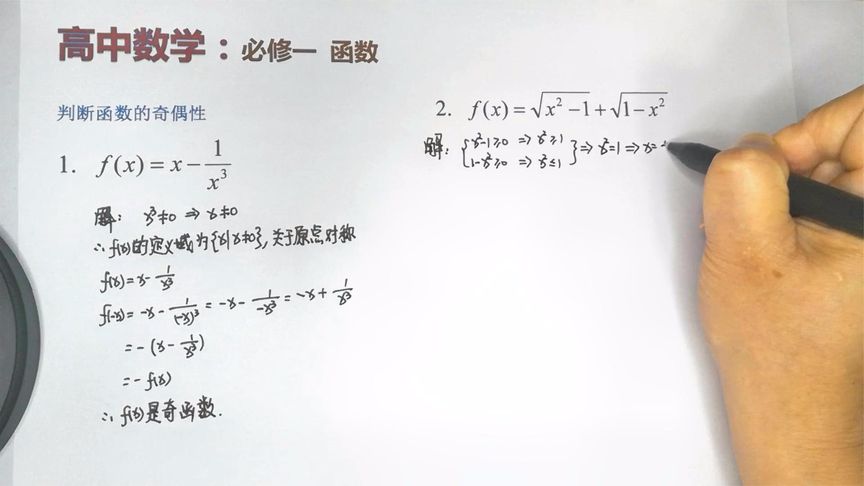 高中数学：必修一 函数
判断函数的奇偶性
1. f(x) = x − 1/x³
解： x³≠0 ⇒ x≠0
∴ f(x)的定义域为{x|x≠0}, 关于原点对称
f(x) = x − 1/x³
f(-x) = -x − 1/(-x)³ = -x − 1/-x³ = -x + 1/x³
= -(x − 1/x³)
= -f(x)
∴ f(x)是奇函数.
2. f(x) = √(x²−1) + √(1−x²)
解： { x²-1≥0 ⇒ x²≥1
1-x²≥0 ⇒ x²≤1 } ⇒ x²=1 ⇒ x=